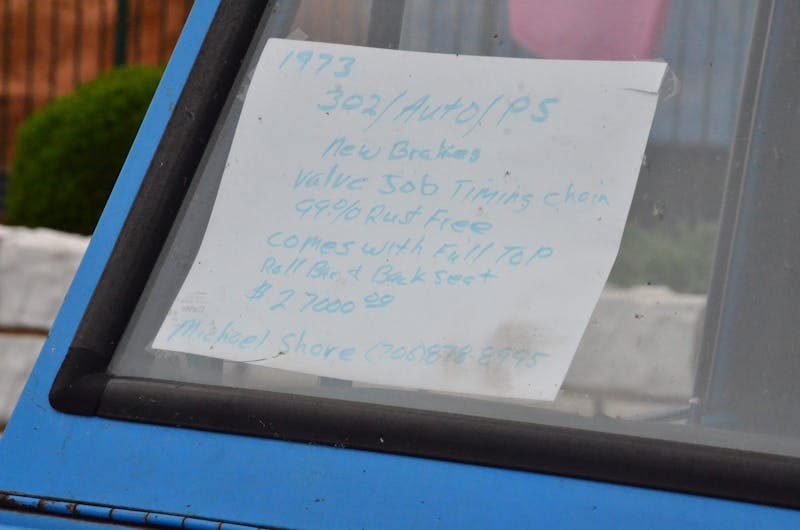 1973
302/Auto/PS
New Brakes
Valve Job Timing chain
99% Rust Free
comes with Full Top
Roll Bar & Back seat
$27000.00
Michael Shore (706)878-8995